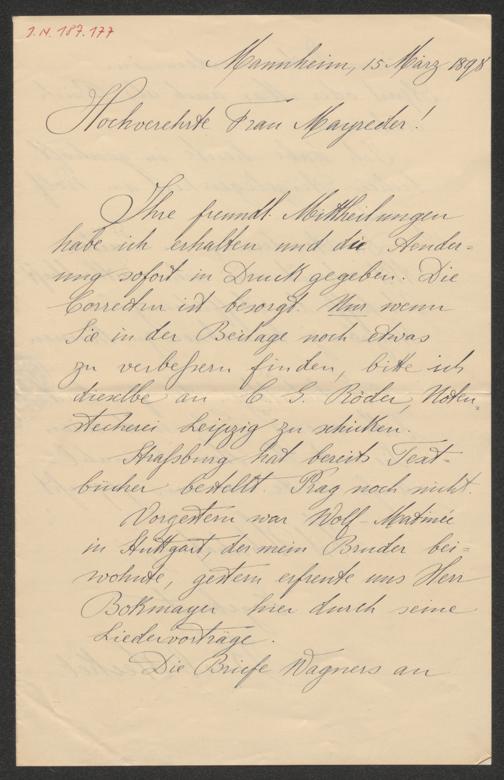 I.N. 187.177
Mannheim, 15 März 1898
Hochverehrte Frau Mayreder!
Ihre freundl. Mittheilungen
habe ich erhalten und die Aender-
ung sofort in Druck gegeben. Die
Correctur ist besorgt. Nur wenn
Sie in der Beilage noch etwas
zu verbeßern finden, bitte ich
dieselbe an C. G. Röder, Noten-
stecherei Leipzig zu schicken.
Straßburg hat bereits Text-
bücher bestellt. Prag noch nicht.
Vorgestern war Wolf-Matinée
in Stuttgart, der mein Bruder bei-
wohnte, gestern erfreute uns Herr
Bokmayer hier durch seine
Liedervorträge.
Die Briefe Wagners an